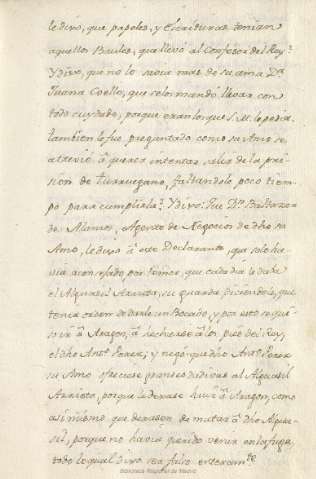 le dixo, que papeles, y Escrituras tenian
aquellos Baules, que llevó al Confesor del Rey?
Y dixo, que no lo supo mas de su ama Dª.
Juana Coello, que selos mandó llevar con
todo cuydado, porque eran los que S. M. le pedia.
tambien le fue preguntado como su Amo se
atrevió à querer intentar salir de la pri
sion de Turruegano, faltandole poco tiem
po para cumplirla? Y dixo: Que Dⁿ. Baltazar
de Alamos, Agente de Negocios de dho su
Amo, le dixo à este Declarante, que solo ha
via aconsejado, por temor, que cada dia le
el Alguacil Arrieta, su guarda, diciendole, que
tenia orden de darle un Bocado, y por esto se que
ria ir à Aragon, à hecharse à los pies del Rey,
el dho Antº. Perez; y negó que dho Antº. Perez
su Amo ofreciese grandes dadivas al Alguacil
Arrieta, porque le dexase huir à Aragon, como
asimismo que de matar à dho Algua
cil, porque no havia querido venir en la fuga
todo lo qual dixo ser falso enteram.te
Biblioteca Regional de Madrid